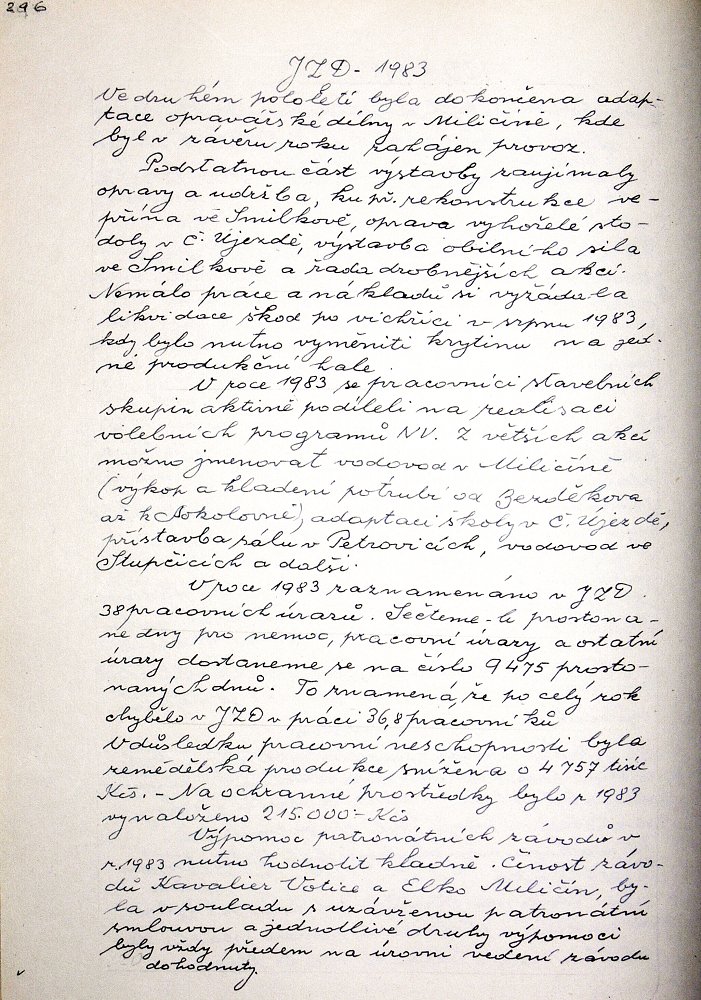 296
JZD - 1983
Ve druhém pololetí byla dokončena adap-
tace opravářské dílny v Miličíně, kde
byl v závěru roku zahájen provoz.
Podstatnou část výstavby zaujímaly
opravy a udržba, ku př. rekonstrukce ve-
přína ve Smilkově, oprava vyhořelé sto-
doly v Č. Újezdě, výstavba obilního sila
ve Smilkově a řada drobnějších akcí.
Nemálo práce a nákladů si vyžádala
likvidace škod po vichřici v srpnu 1983,
kdy bylo nutno vyměniti krytinu na jed-
né produkční hale.
V roce 1983 se pracovníci stavebních
skupin aktivně podíleli na realisaci
volebních programů NV. Z větších akcí
možno jmenovat vodovod v Miličíně
(výkop a kladení potrubí od Bezděkova
až k Sokolovně), adaptaci školy v Č. Újezdě,
přístavba sálu v Petrovicích, vodovod ve
Stupčicích a další.
V roce 1983 zaznamenáno v JZD
38 pracovních úrazů. Sečteme-li prostona-
né dny pro nemoc, pracovní úrazy a ostatní
úrazy dostaneme se na číslo 9475 prosto-
naných dnů. To znamená, že po celý rok
chybělo v JZD v práci 36,8 pracovníků
V důsledku pracovní neschopnosti byla
zemědělská produkce snížena o 4757 tisíc
Kčs. - Na ochranné prostředky bylo r 1983
vynaloženo 215.000 - Kčs
Výpomoc patronátních závodů v
r. 1983 nutno hodnotit kladně. Činost závo-
dů Kavalier Votice a Elko Miličín, by-
la v souladu s uzávženou patronátní
smlouvou a jednotlivé druhy výpomoci
byly vždy předem na úrovni vedení závodu
dohodnuty.